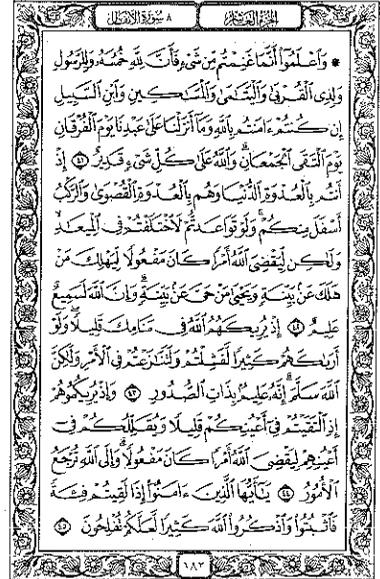 الجزء العاشر ٨ سورة الأنفال
* وَٱعْلَمُوٓا۟ أَنَّمَا غَنِمْتُم مِّن شَىْءٍ فَأَنَّ لِلَّهِ خُمُسَهُۥ وَلِلرَّسُولِ
وَلِذِى ٱلْقُرْبَىٰ وَٱلْيَتَٰمَىٰ وَٱلْمَسَٰكِينِ وَٱبْنِ ٱلسَّبِيلِ
إِن كُنتُمْ ءَامَنتُم بِٱللَّهِ وَمَآ أَنزَلْنَا عَلَىٰ عَبْدِنَا يَوْمَ ٱلْفُرْقَانِ
يَوْمَ ٱلْتَقَى ٱلْجَمْعَانِ ۗ وَٱللَّهُ عَلَىٰ كُلِّ شَىْءٍ قَدِيرٌ ٤١ إِذْ
أَنتُم بِٱلْعُدْوَةِ ٱلدُّنْيَا وَهُم بِٱلْعُدْوَةِ ٱلْقُصْوَىٰ وَٱلرَّكْبُ
أَسْفَلَ مِنكُمْ ۚ وَلَوْ تَوَاعَدتُّمْ لَٱخْتَلَفْتُمْ فِى ٱلْمِيعَٰدِ ۙ
وَلَٰكِن لِّيَقْضِىَ ٱللَّهُ أَمْرًا كَانَ مَفْعُولًا لِّيَهْلِكَ مَنْ
هَلَكَ عَنۢ بَيِّنَةٍ وَيَحْيَىٰ مَنْ حَىَّ عَنۢ بَيِّنَةٍ ۗ وَإِنَّ ٱللَّهَ لَسَمِيعٌ
عَلِيمٌ ٤٢ إِذْ يُرِيكَهُمُ ٱللَّهُ فِى مَنَامِكَ قَلِيلًا ۖ وَلَوْ
أَرَىٰكَهُمْ كَثِيرًا لَّفَشِلْتُمْ وَلَتَنَٰزَعْتُمْ فِى ٱلْأَمْرِ وَلَٰكِنَّ
ٱللَّهَ سَلَّمَ ۗ إِنَّهُۥ عَلِيمٌۢ بِذَاتِ ٱلصُّدُورِ ٤٣ وَإِذْ يُرِيكُمُوهُمْ
إِذِ ٱلْتَقَيْتُمْ فِىٓ أَعْيُنِكُمْ قَلِيلًا وَيُقَلِّلُكُمْ فِىٓ
أَعْيُنِهِمْ لِيَقْضِىَ ٱللَّهُ أَمْرًا كَانَ مَفْعُولًا ۗ وَإِلَى ٱللَّهِ تُرْجَعُ
ٱلْأُمُورُ ٤٤ يَٰٓأَيُّهَا ٱلَّذِينَ ءَامَنُوٓا۟ إِذَا لَقِيتُمْ فِئَةً
فَٱثْبُتُوا۟ وَٱذْكُرُوا۟ ٱللَّهَ كَثِيرًا لَّعَلَّكُمْ تُفْلِحُونَ ٤٥
١٨٢